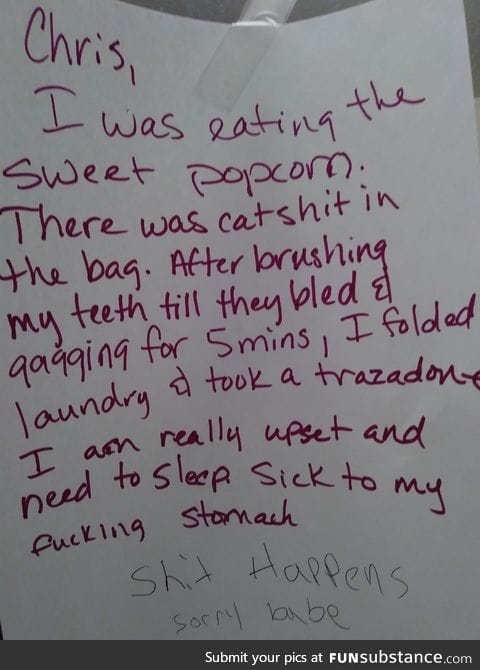 Chris,
I was eating the
sweet popcorn.
There was catshit in
the bag. After brushing
my teeth till they bled &
gagging for 5mins, I folded
laundry & took a trazadone
I am really upset and
need to sleep sick to my
fucking stomach
Shit Happens
sorry babe
Submit your pics at FUNsubstance.com